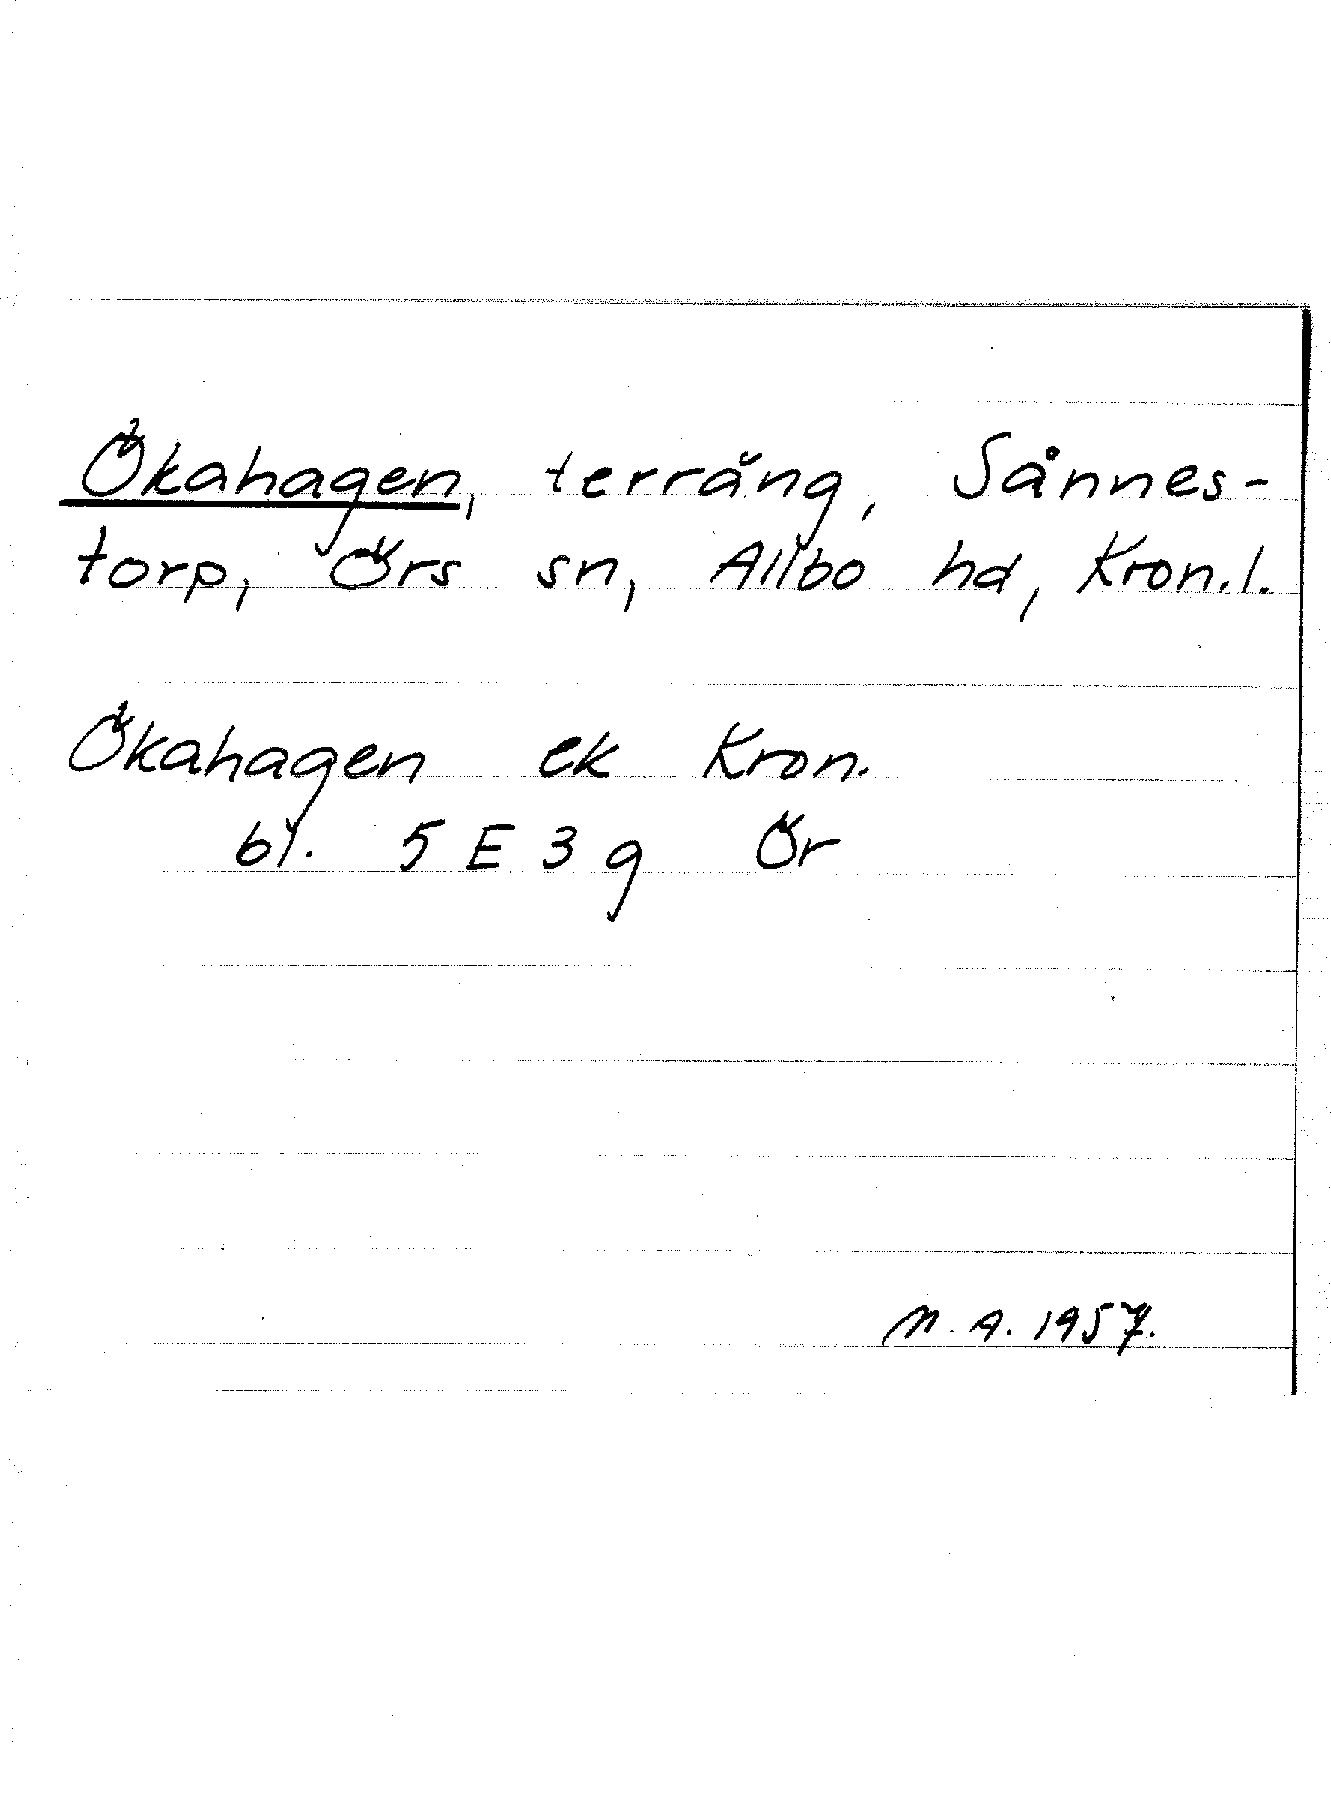 Ökahagen, terräng, Sånnes-
torp, Örs sn, Allbo hd, Kron.l.
Ökahagen ek Kron.
bl. 5 E 3 g Ör
M.A. 1957.